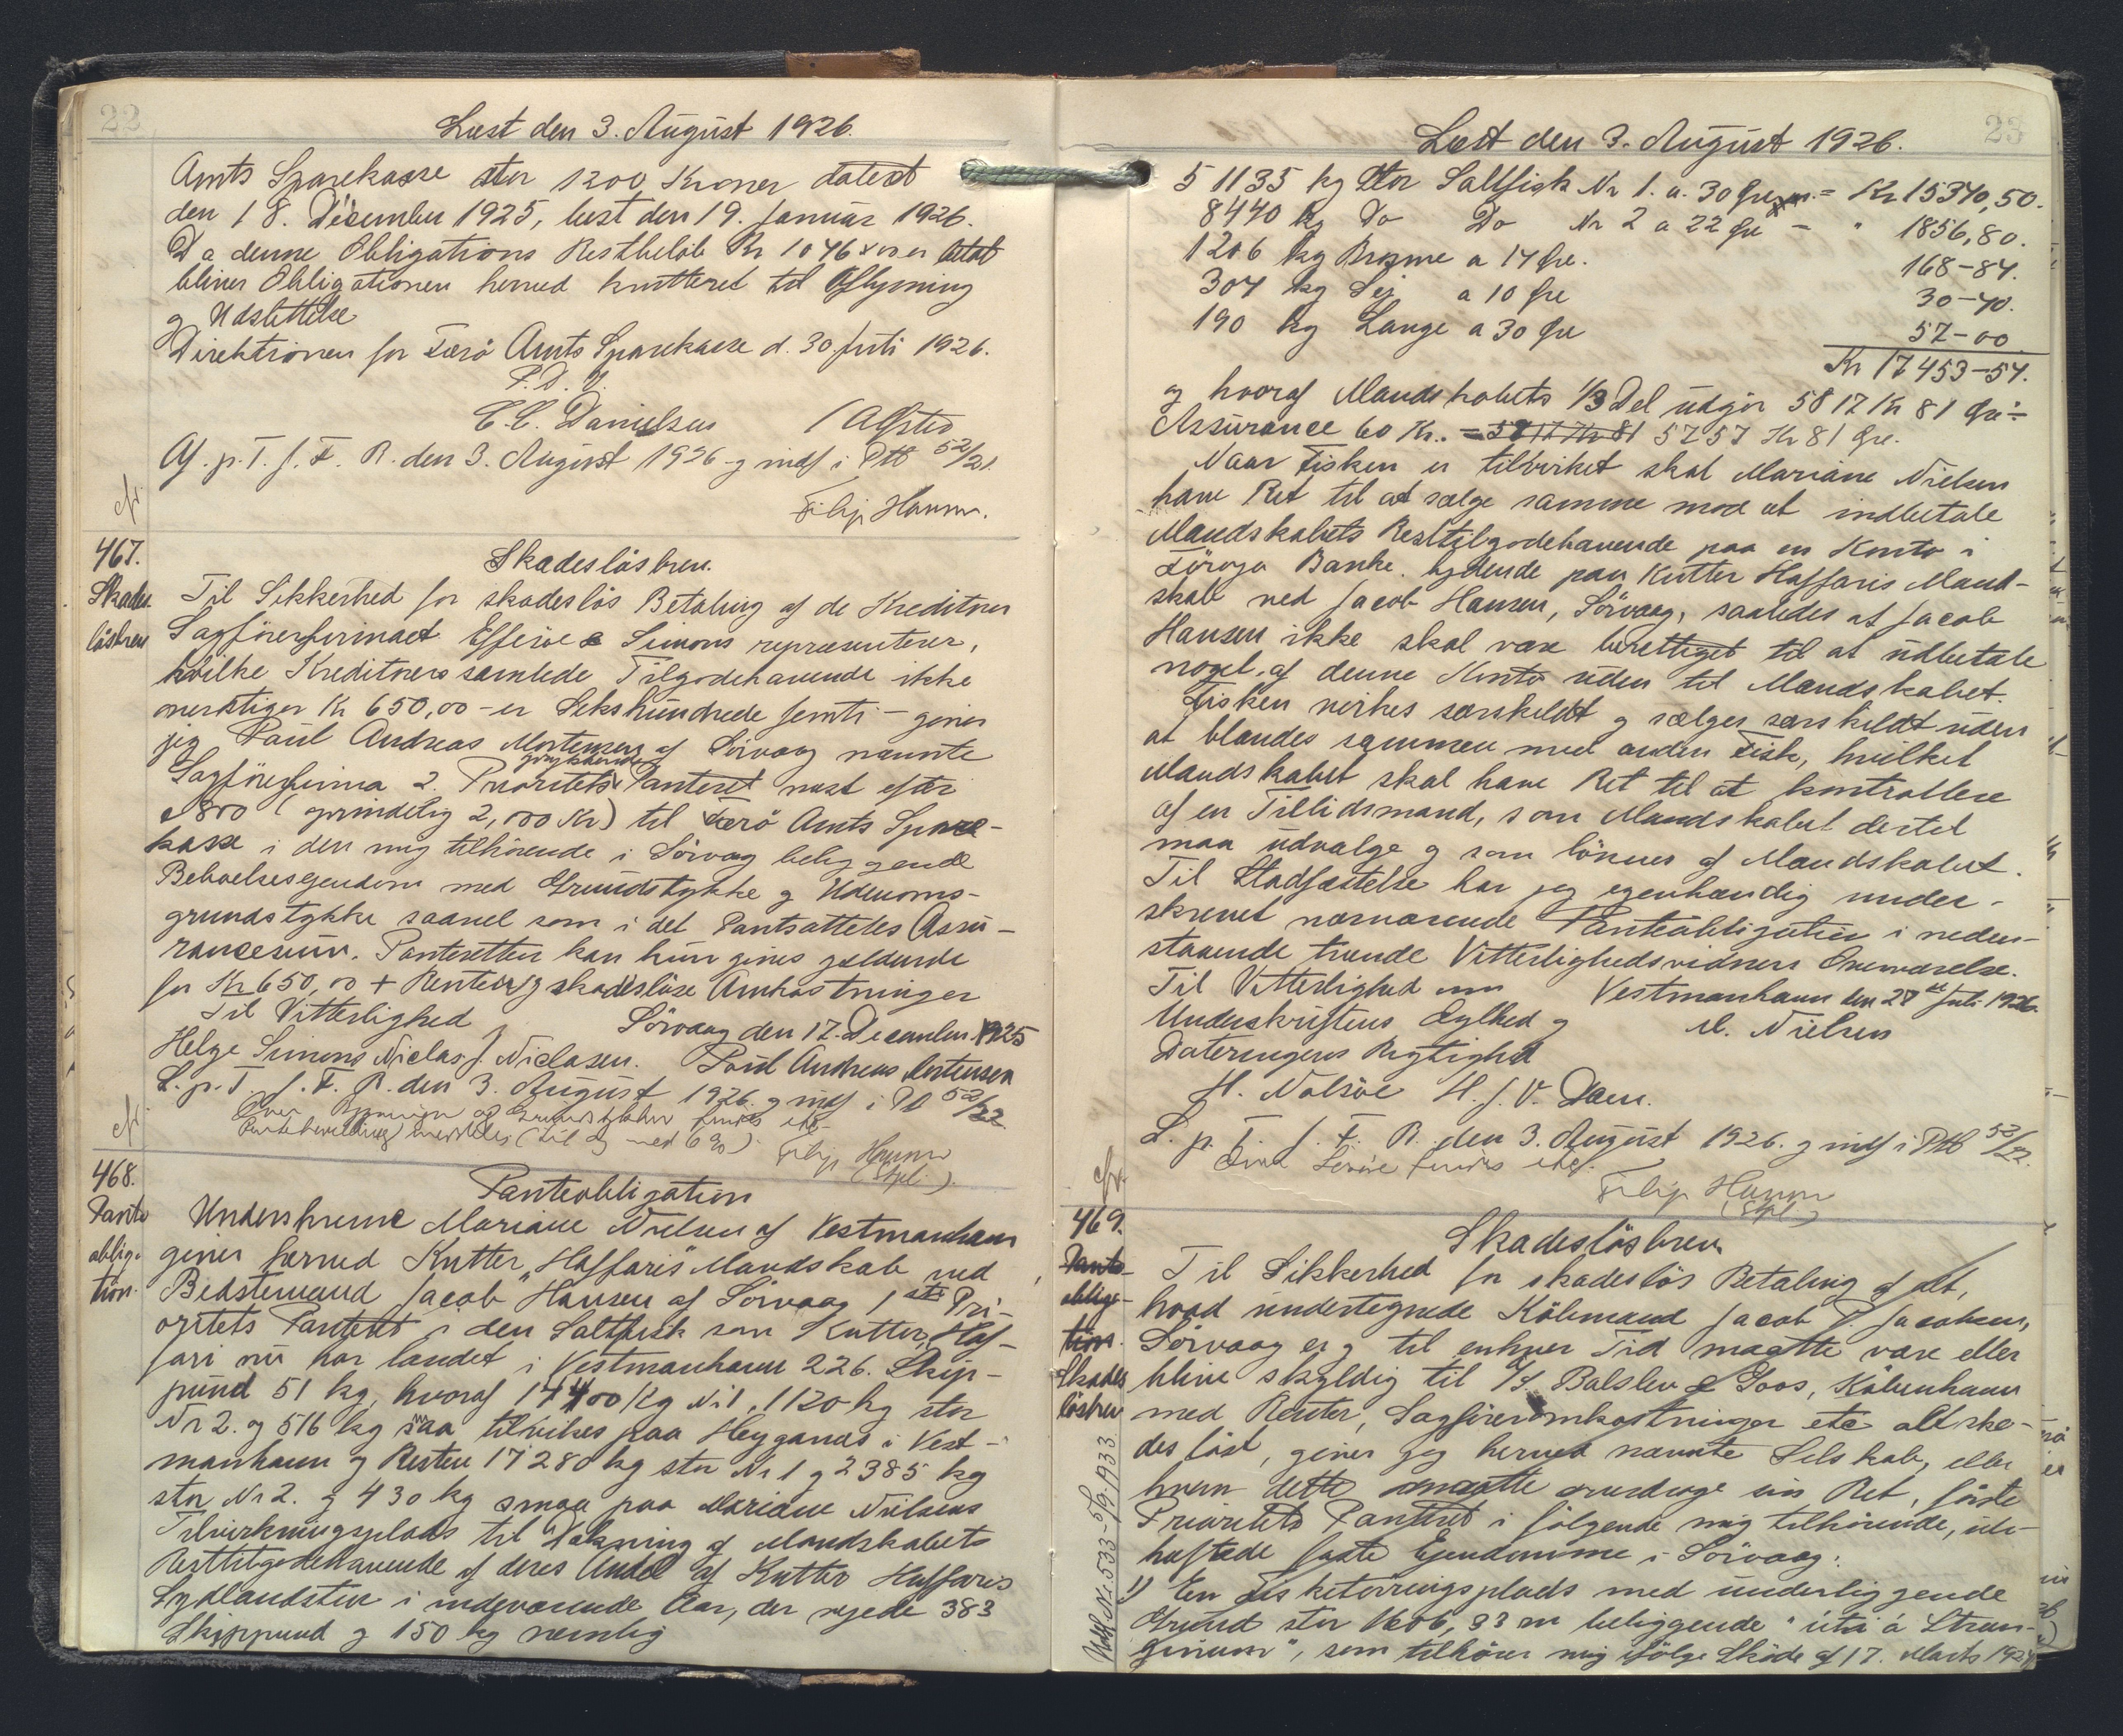 22
Læst den 3. August 1926.
Amts Sparekasse stor 1200 Kroner dateret
den 18. Desember 1925, læst den 19. Januar 1926.
Da denne Obligations Restbeløb Kr 1046 er betalt
bliver Obligationen herved kvitteret til Aflysning
og Udslettelse
Direktionen for Færö Amts Sparekasse d. 30 Juli 1926.
P.D.V.
C.C. Danielsen / Alsted
Af. p. T. f. F. R. den 3. August 1926 og indf i Ptb 52/21.
Filip Hamm.
cfr.
467.
Skades
lösbrev
Skadeslösbrev.
Til Sikkerhed for skadeslös Betaling af de Kreditorer
Sagförerfirmaet Effersöe & Simons repræsenterer,
hvilke Kreditorers samlede Tilgodehavende ikke
overstiger Kr 650,00 - er Sekshundrede femti - giver
jeg Paul Andreas Mortensen af Sörvaag nævnte
Sagförerfirma 2. Prioritets Panteret næst efter
1800 (oprindelig 2,000 Kr) til Færö Amts Spare-
kasse i den mig tilhörende i Sörvaag beliggende
Beboelsesejendom med Grundstykke og Udenoms-
grundstykke saavel som i det Pantsattetes Assu-
rancesum. Panteretten kan kun gives gældende
for Kr 650,00 + Renter og skadeslöse Omkostninger
Til Vitterlighed Sörvaag den 17. December 1925
Helge Simons Niclas J. Niclasen. Poul Andreas Mortensen
L. p. T. f. F. R. den 3. August 1926. og indf i Ptb 52/22
Over Bygningen og Grundstykker findes ikke
Filip Hamm
(Spl.).
cfr.
468.
Pante
obliga
tion.
Panteobligation
Underskrevne Mariane Nielsen af Vestmanhavn
giver herved Kutter "Haffaris" Mandskab ved
Bedstemand Jacob Hansen af Sörvaag 1ste Pri-
oritets Panteret i den Saltfisk som Kutter Haf-
fari nu har landet i Vestmanhavn 226. Skip-
pund 51 kg, hvoraf 14400 Kg Nr 1, 1120 kg stor
Nr 2. og 516 kg smaa tilvirkes paa Heyganæs i Vest-
manhavn og Resten 17280 kg stor Nr 1 og 2385 kg
stor Nr 2. og 430 kg smaa paa Mariane Nielsens
Tilvirkningsplads til Dækning af Mandskabets
Resttilgodehavende af deres Andel af Kutter Haffaris
Sydlandstur i indeværende Aar, der vejede 383
Skippund og 150 kg nemlig
23
Læst den 3. August 1926.
51135 kg Stor Saltfisk Nr 1. a. 30 Øre = Kr 15340,50.
8440 kg Do Do Nr 2 a 22 Øre - " 1856,80.
1206 kg Brosme a 14 Øre. 168-84.
304 kg Sej a 10 Øre 30-40.
190 kg Lange a 30 Øre 57-00
Kr 17453-54.
og hvoraf Mandskabets 1/3 Del udgör 5817 Kr 81 Øre ÷
Assurance 60 Kr. = 5817 Kr 81 5757 Kr 81 Øre.
Naar Fisken er tilvirket skal Mariane Nielsen
have Ret til at sælge samme mod at indbetale
Mandskabets Resttilgodehavende paa en Konto i
Föroya Banki lydende paa Kutter Haffaris Mand-
skab ved Jacob Hansen, Sörvaag, saaledes at Jacob
Hansen ikke skal være berettiget til at udbetale
noget af denne Konto uden til Mandskabet.
Fisken virkes særskildt og sælges særskildt uden
at blandes sammen med anden Fisk, hvilket
Mandskabet skal have Ret til at kontrollere
af en Tillidsmand, som Mandskabet dertil
maa udvælge og som lönnes af Mandskabet.
Til Stadfæstelse har jeg egenhændig under-
skrevet nærværende Panteobligation i neden-
staaende tvende Vitterlighedsvidners Overværelse.
Til Vitterlighed om Vestmanhavn den 27de Juli 1926.
Underskriftens Ægthed og M. Nielsen
Dateringens Rigtighed
H. Nolsöe H. J. V. Dam.
L. p. T. f. F. R. den 3. August 1926. og indf i Ptb 52/22.
findes ikke.
Filip Hamm
(Spl.)
cfr.
469.
Pante-
obliga-
tion.
Skades
lösbrev
Skadeslösbrev.
Til Sikkerhed for skadeslös Betaling af alt,
hvad undertegnede Köbmand Jacob P. Jacobsen,
Sörvaag er og til enhver Tid maatte være eller
blive skyldig til A/S. Balslev & Goos, Köbenhavn
med Renter, Sagföreromkostninger etc alt ska-
deslöst, giver jeg herved nævnte Selskab, eller
hvem dette maatte overdrage sin Ret, förste
Prioritets Panteret i fölgende mig tilhörende, ube-
hæftede faste Ejendomme i Sörvaag:
1) En Fisketörringsplads med underliggende
Grund stor 1606,93 m beliggende "úti á Stran-
ginum", som tilhörer mig ifölge Sköde af 17. Marts 192